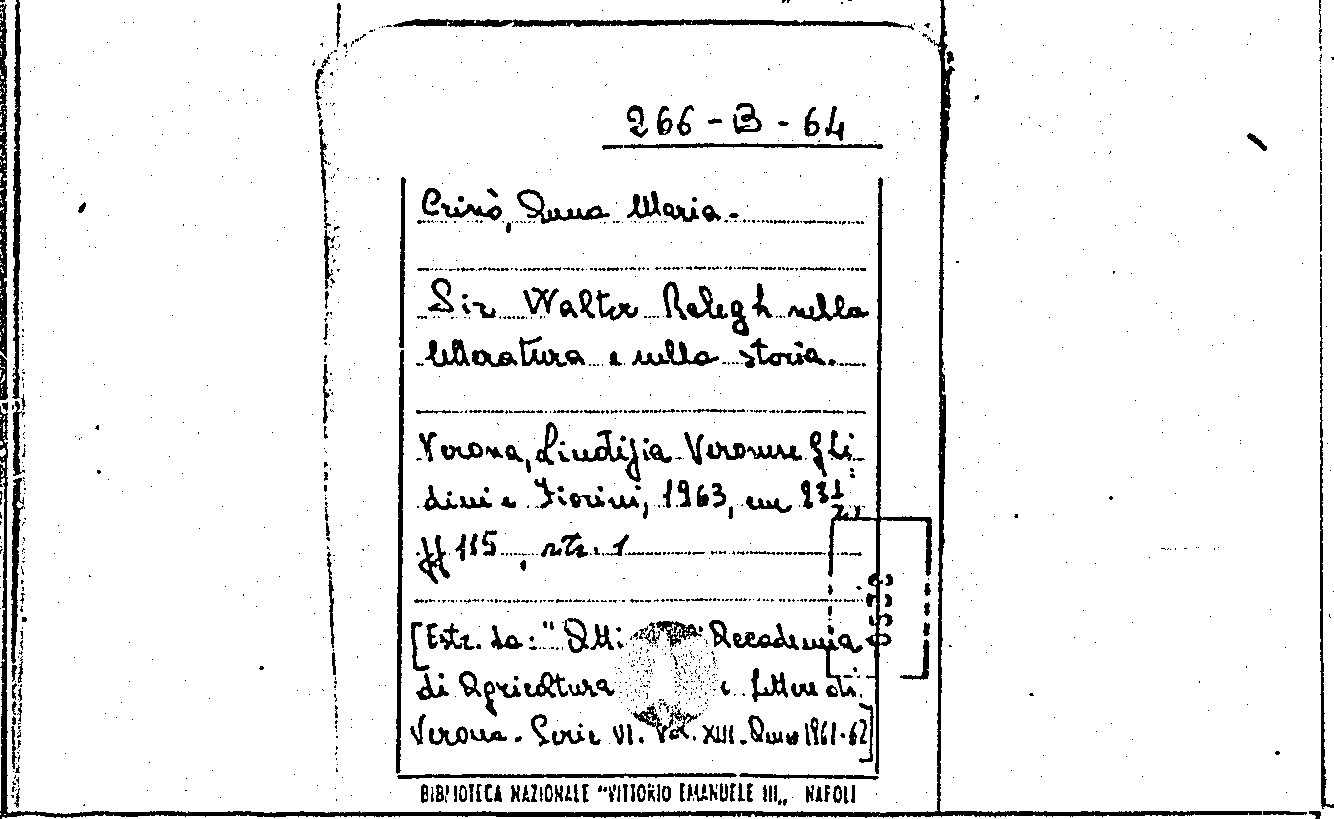 266-B-64
Crinò, Anna Maria.
Sir Walter Ralegh nella
letteratura e nella storia.
Verona, Linotipia Veronese Ghi
dini e Fiorini, 1963, cm 23½,
ff 115, rtr. 1
[Estr. da: "Atti Accademia
di Agricoltura e Lettere di
Verona. Serie VI. Vol. XIII. Anno 1961-62]
BIBLIOTECA NAZIONALE "VITTORIO EMANUELE III„ NAPOLI